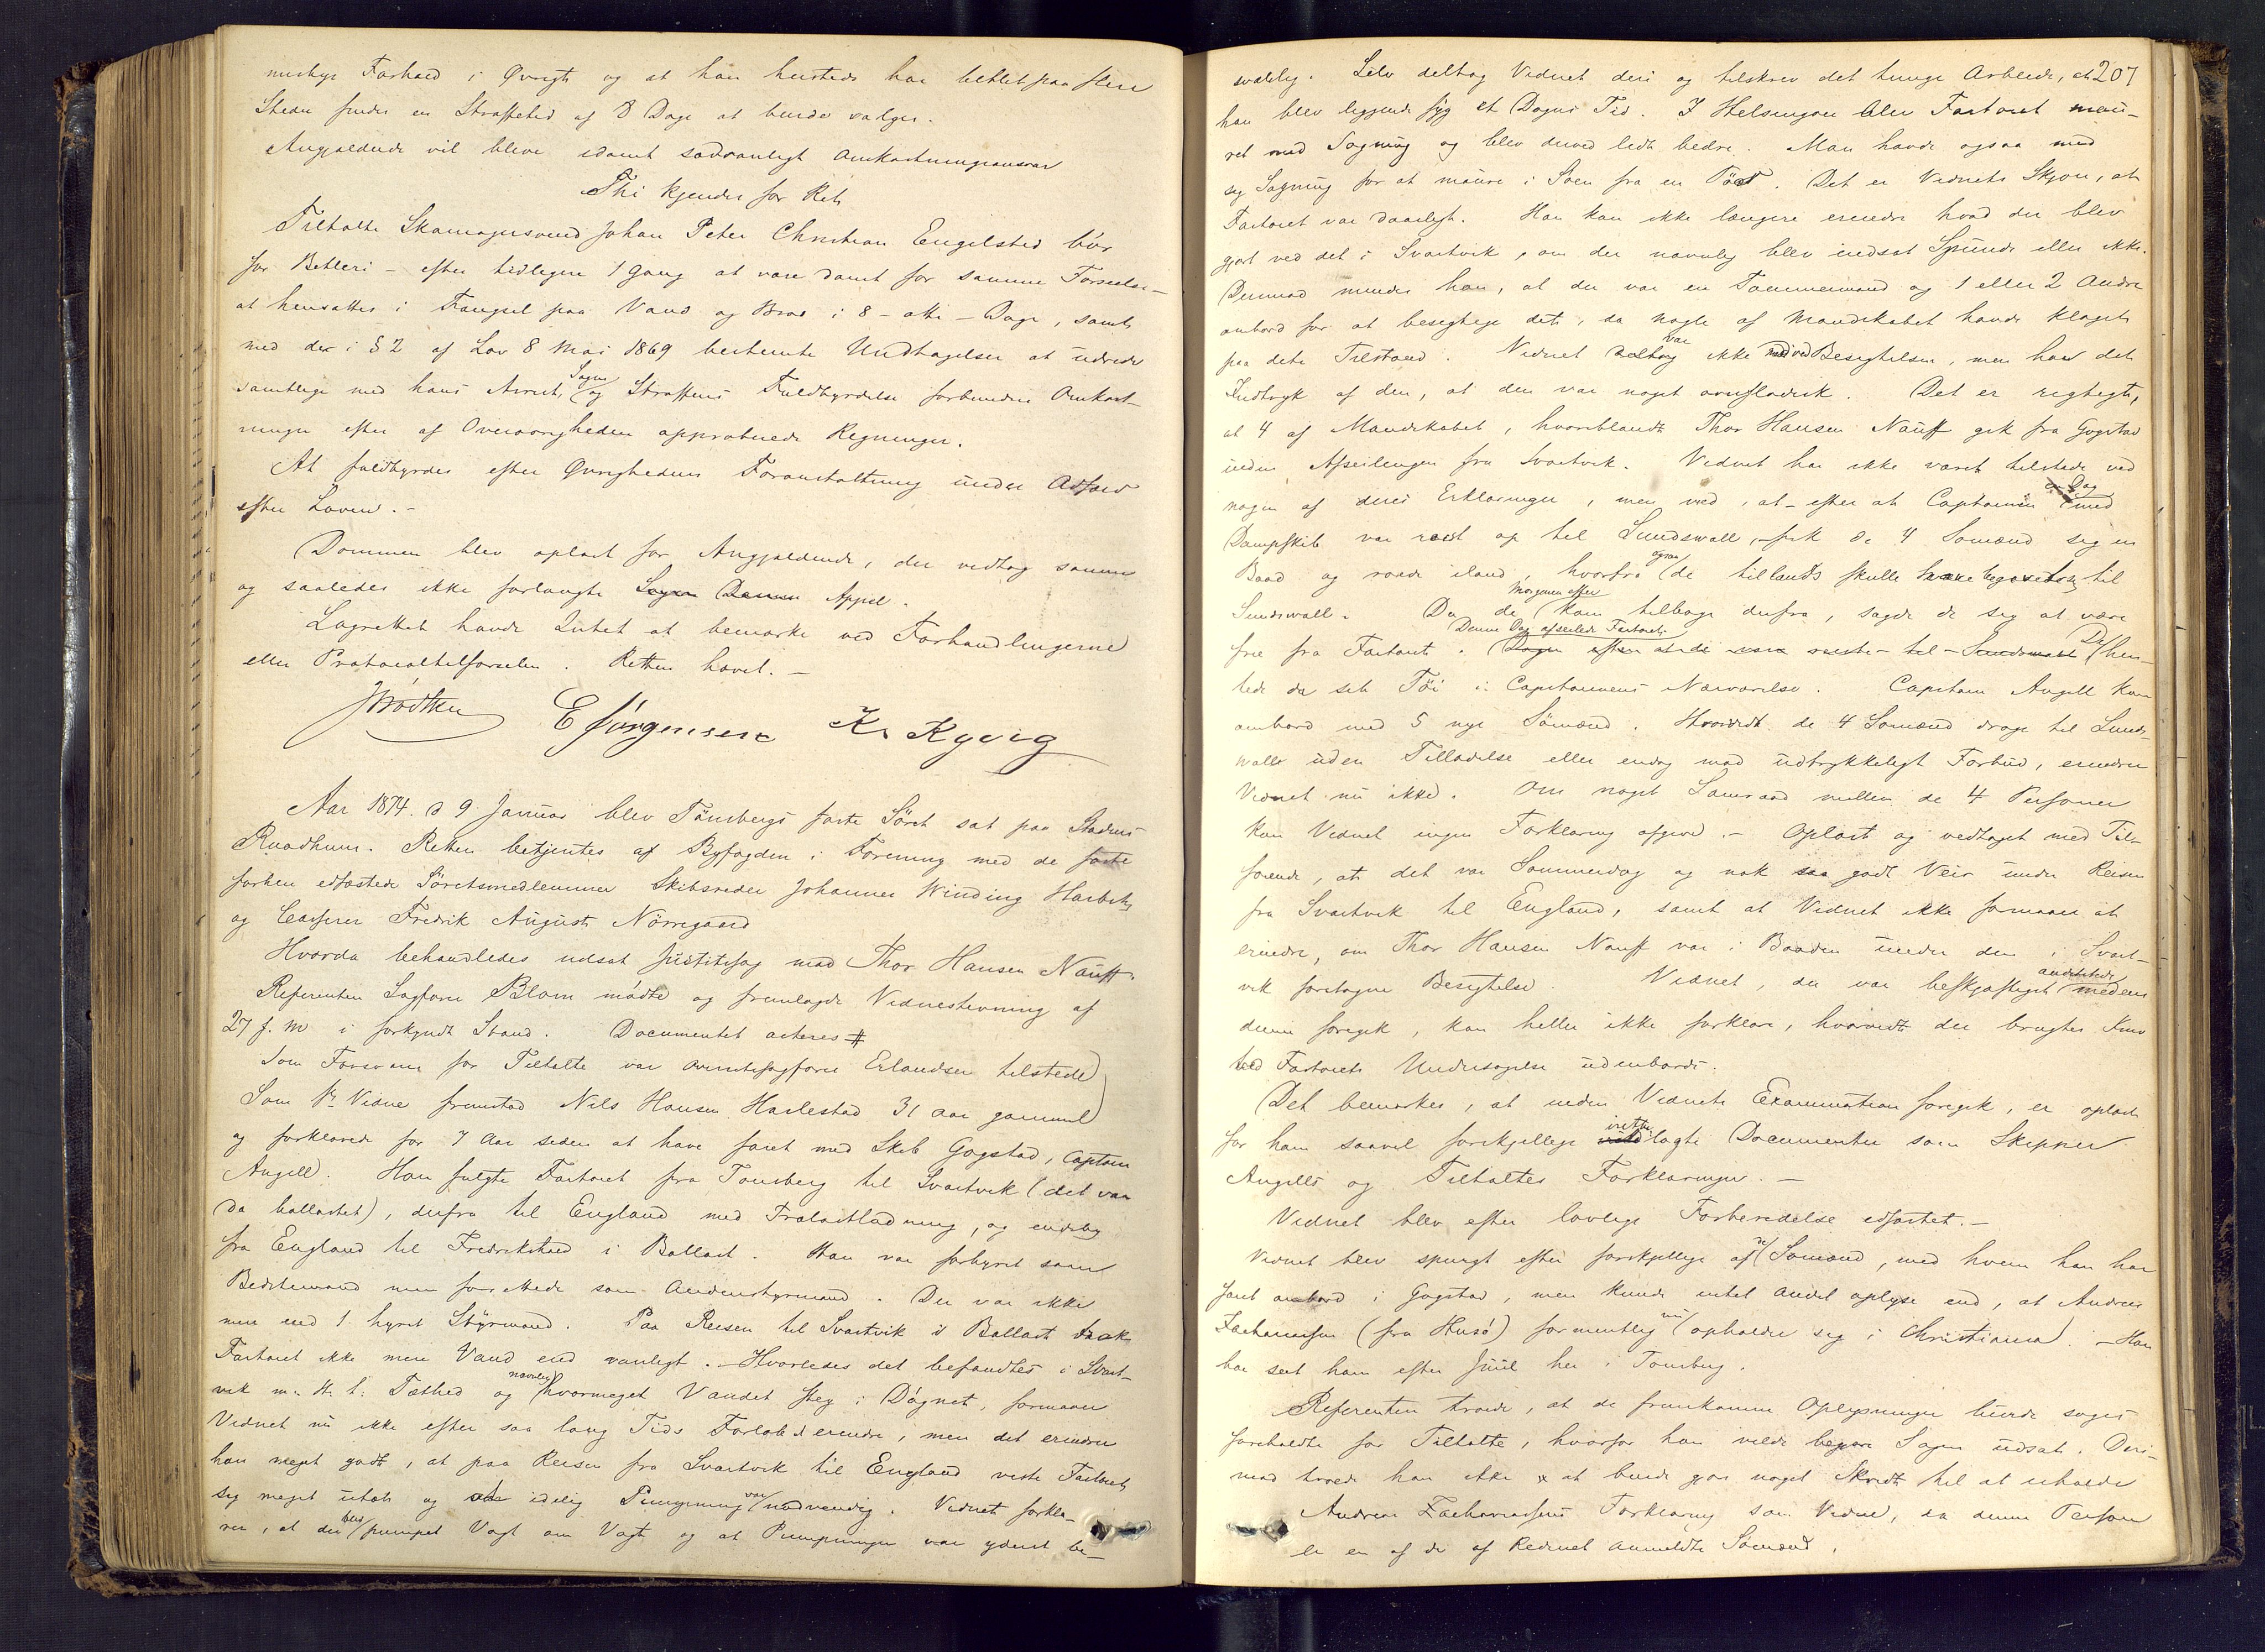 Forhold i Øvrigt og at han hersteds har betlet paa flere
Steder findes en Straffetid af 8 Dage at burde vælges.
Angjældende vil blive idømt sædvanligt Omkostningsansvar
Thi kjendes for Ret:
Tiltalte Skomagersvend Johan Peter Christian Engelsted bör
for Betleri – efter tidligere 1 Gang at være dömt for samme Forseelse –
at hensættes i Fængsel paa Vand og Bröd i 8 – otte – Dage, samt
med de i § 2 af Lov 8 Mai 1869 bestemte Undtagelser at udrede
samtlige med hans Arrest, Sagen og Straffens Fuldbyrdelse forbundne Omkost-
ninger efter af Overøvrigheden approberede Regninger.
At fuldbyrdes efter Øvrighedens Foranstaltning under Adfærd
efter Loven. –
Dommen blev oplæst for Angjældende, der vedtog samme
og saaledes ikke forlangte Appel.
Lagrettet havde Intet at bemærke ved Forhandlingerne
eller Protocoltilførselen. Retten hævet. –
E Jörgensen K. Kyvig
Aar 1874. d 9 Januar blev Tönsbergs faste Söret sat paa Stadens
Raadhuus. Retten betjentes af Byfogden i Forening med de faste
forhen edfæstede Söretsmedlemmer Skibsreder Johannes Winding Harbitz
og Casserer Fredrik August Nörregaard
Hvorda behandledes udsat Justitssag mod Thor Hansen Nauff.
Referenten Sagförer Blom mödte og fremlagde Vidnestevning af
27 f. M i forkyndt Stand. Documentet acteres #
Som Forsvarer for Tiltalte var Overretssagförer Erlandsen tilstede
Som 1ste Vidne fremstod Nils Hansen Harlestad 31 Aar gammel
og forklarede for 7 Aar siden at have faret med Skib Gogstad, Captain
Angell. Han fulgte Fartøiet fra Tønsberg til Svartvik (det var
da ballastet), derfra til England med Trælastladning, og endelig
fra England til Fredrikstad i Ballast. Han var forhyret som
Bedstemand men forrettede som Andenstyrmand. Der var ikke
mere end 1 hyret Styrmand. Paa Reisen til Svartvik i Ballast trak
Fartøiet ikke mere Vand end vanligt. – Hvorledes det befandtes i Svart-
vik m. H. t. Tæthed og navnlig hvormeget Vandet steg i Døgnet, formaaer
Vidnet nu ikke efter saa lang Tids Forløb at erindre, men det erindrer
han meget godt, at paa Reisen fra Svartvik til England viste Fartøiet
sig meget utæt og idelig Pumpning var nødvendig. Vidnet forkla-
rer, at der blev pumpet Vagt om Vagt og at Pumpningen var yderst be-
207
sværlig. Selv deltog Vidnet deri og tilskrev det tunge Arbeide, at
han blev liggende syg et Døgns Tid. I Helsingøer blev Fartøiet mau-
ret med Sagmug og blev derved lidt bedre. Man havde ogsaa med
sig Sagmug for at maure i Søen fra en Pöst. Det er Vidnets Skjøn, at
Fartøiet var daarligt. Han kan ikke længere erindre hvad der blev
gjort ved det i Svartvik, om der navnlig blev indsat Spunds eller ikke.
Derimod mindes han, at der var en Tømmermand og 1 eller 2 Andre
ombord for at besigtige det, da nogle af Mandskabet havde klaget
paa dets Tilstand. Vidnet var ikke med ved Besigtelsen, men har det
Indtryk af den, at den var noget overfladisk. Det er rigtigt,
at 4 af Mandskabet, hvoriblandt Thor Hansen Nauff gik fra Gogstad
inden Afseilingen fra Svartvik. Vidnet har ikke været tilstede ved
nogen af deres Erklæringer, men ved, at – efter at Captainen en Dag med
Dampskib var reist op til Sundswall, fik de 4 Sømænd sig en
Baad og roede iland, hvorfra ogsaa de tillands skulle begive sig til
Sundswall. Da de Morgenen efter kom tilbage derfra, sagde de sig at være
frie fra Fartøiet. Denne Dag afseilede Fartøiet. De hen-
tede da sit Töi i Capitainens Nærværelse. Captain Angell kom
ombord med 5 nye Sömænd. Hvorvidt de 4 Sømænd drog til Sunds-
wall uden Tilladelse eller endog mod udtrykkeligt Forbud, erindrer
Vidnet nu ikke. Om noget Samraad mellem de 4 Personer
kan Vidnet ingen Forklaring afgive. – Oplæst og vedtaget med Til-
føiende, at det var Sommerdag og nok saa godt Veir under Reisen
fra Svartvik til England, samt at Vidnet ikke formaaer at
erindre, om Thor Hansen Nauff var i Baaden under den i Svart-
vik foretagne Besigtelse. Vidnet, der var beskjæftiget andetsteds medens
denne foregik, kan heller ikke forklare, hvorvidt der brugtes Kniv
ved Fartøiets Undersøgelse udenbords.
Det bemærkes, at inden Vidnets Examination foregik, er oplæst
for ham saavel forskjellige irettelagte Documenter som Skipper
Angells og Tiltaltes Forklaringer. –
Vidnet blev efter lovlige Forberedelse edfæstet. –
Vidnet blev spurgt efter forskjellige af de Sømænd, med hvem han har
faret ombord i Gogstad, men kunde intet Andet oplyse end, at Andreas
Zachariassen (fra Husö) formentlig nu opholder sig i Christiania. – Han
har seet ham efter Juul her i Tønsberg.
Referenten troede, at de fremkomne Oplysninger burde søges
foreholdte for Tiltalte, hvorfor han vilde begjære Sagen udsat. Deri-
mod troede han ikke at burde gjøre noget Skridt til at erholde
Andreas Zachariassens Forklaring som Vidne, da denne Person
er en af de af Rederiet anmeldte Sömænd.